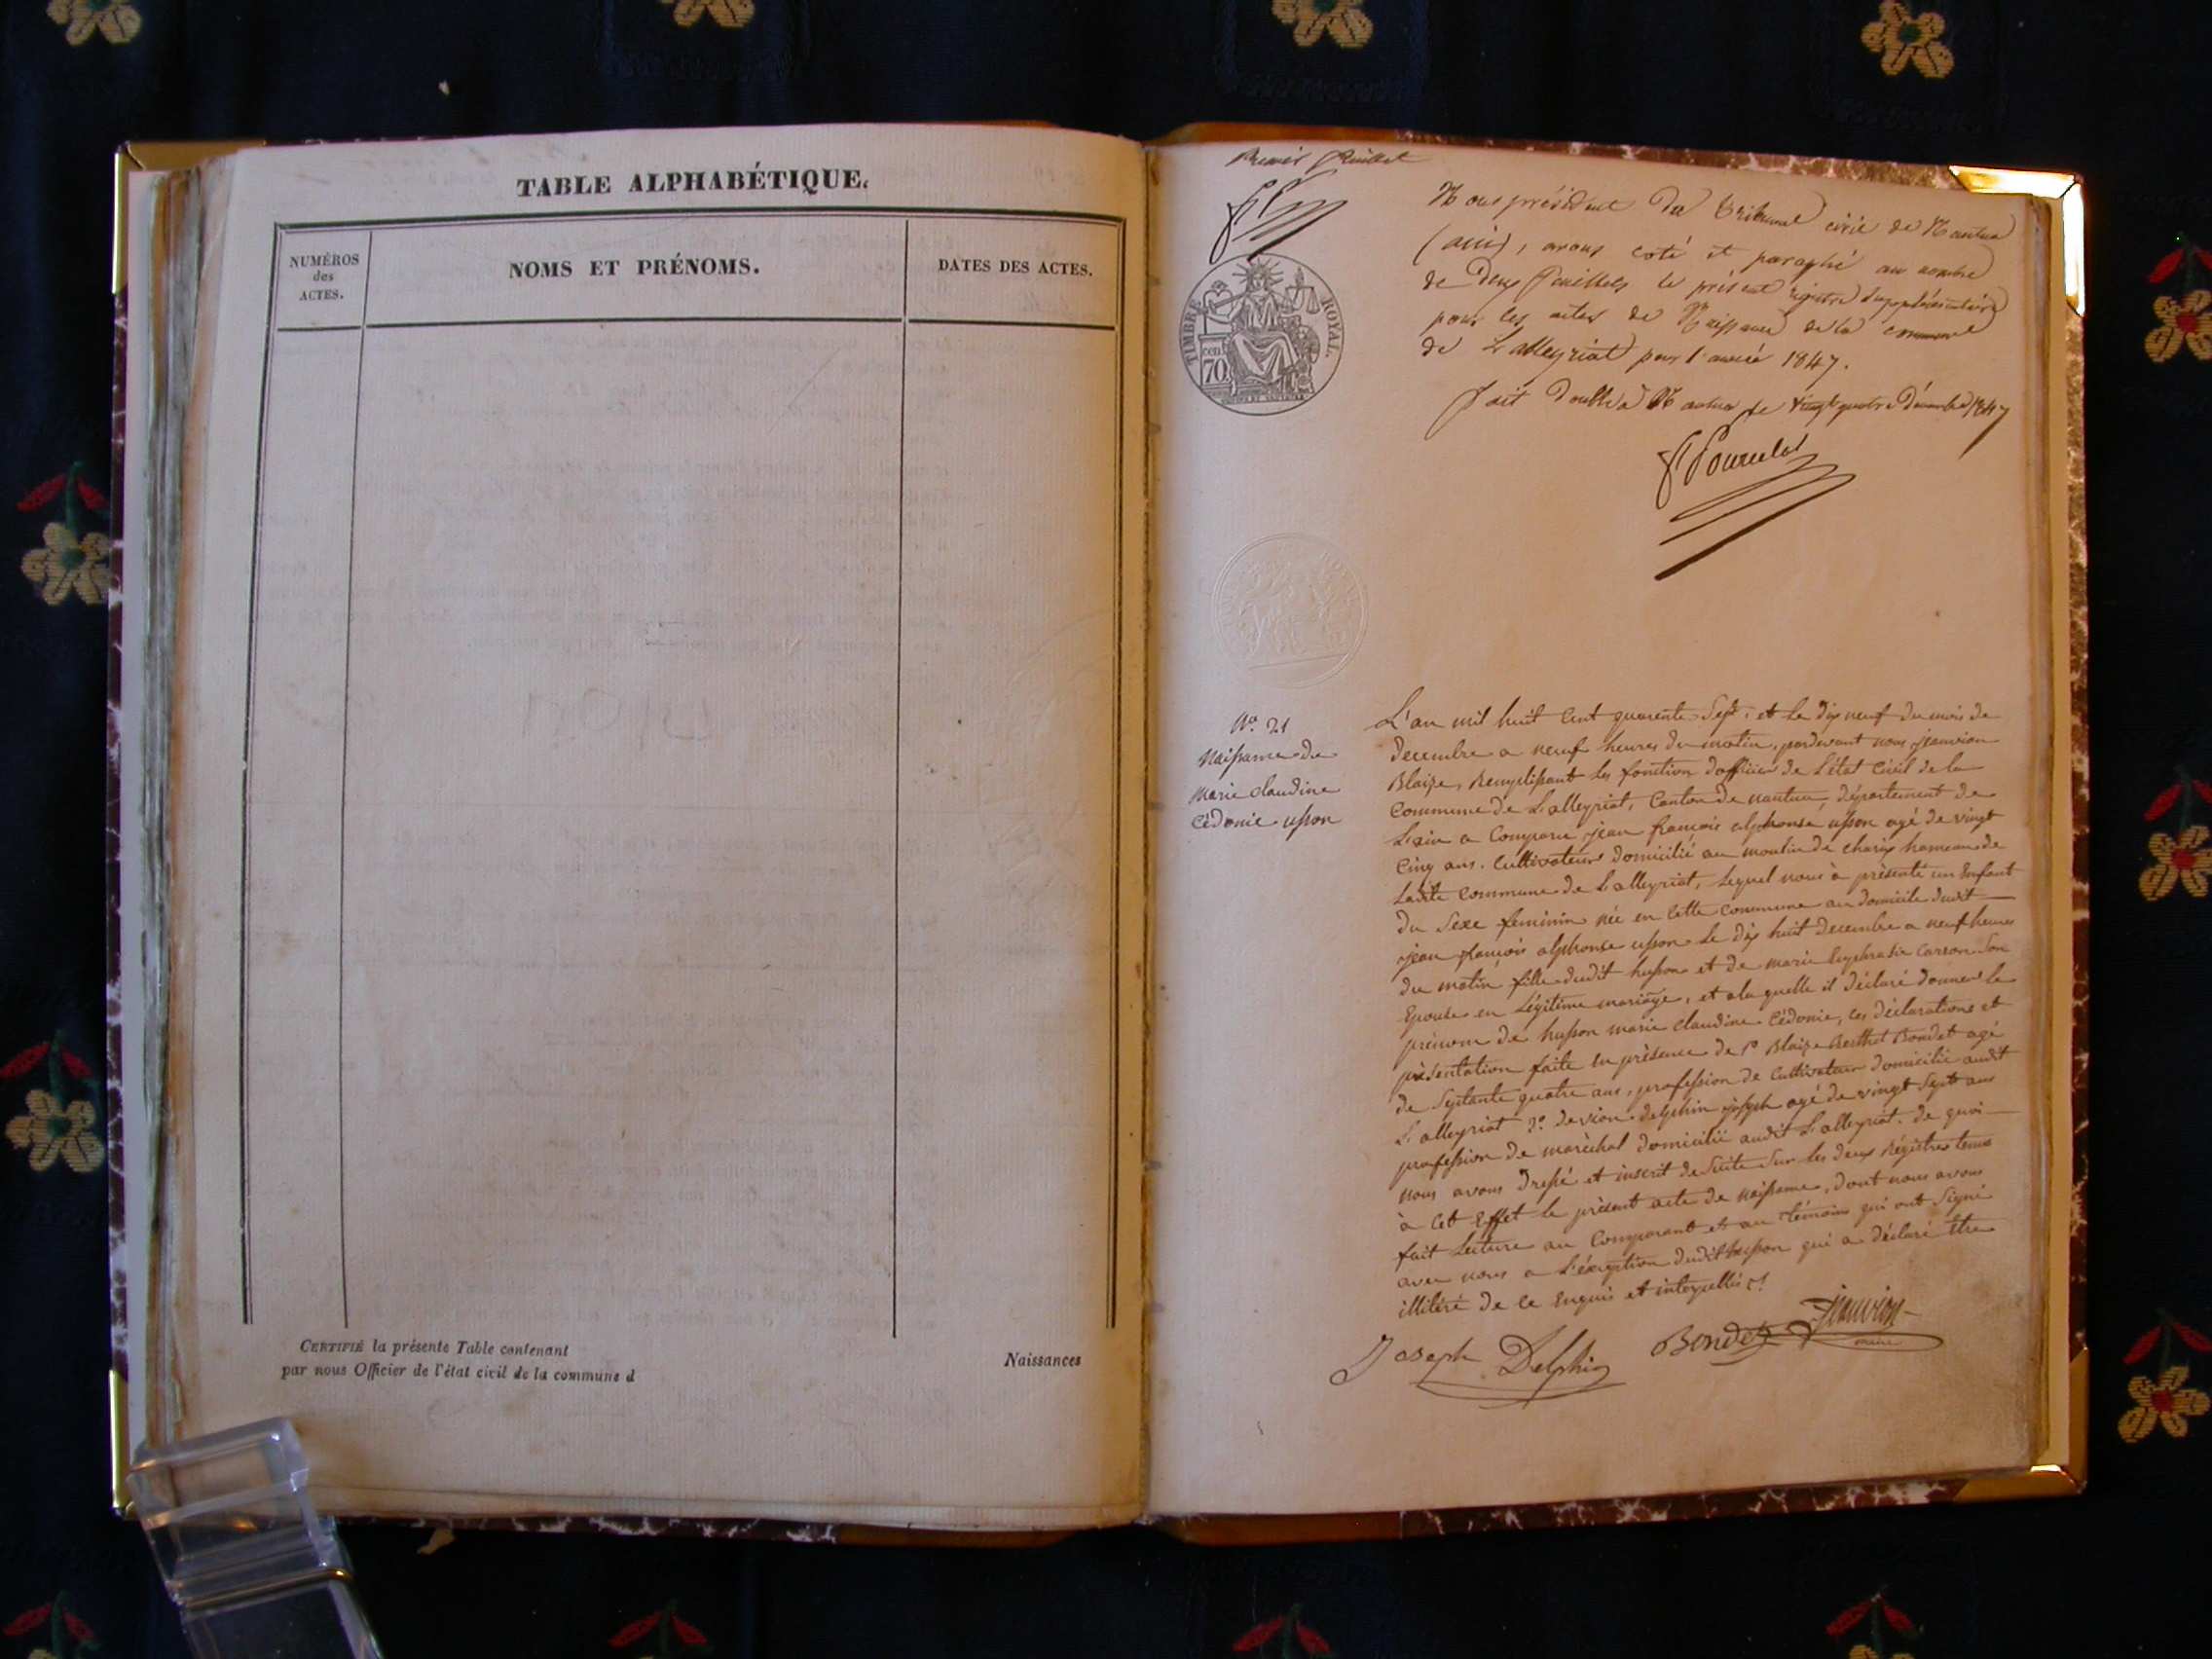 TABLE ALPHABÉTIQUE.
NUMÉROS
des
ACTES.
NOMS ET PRÉNOMS.
DATES DES ACTES.
CERTIFIÉ la présente Table contenant
Naissances
par nous Officier de l'état civil de la commune d
Premier feuillet
TIMBRE ROYAL.
cent.
70
Nous président du tribunal civil de Nantua
(ain), avons coté et paraphé au nombre
de deux feuillets le présent registre supplémentaire
pour les actes de Naissance de la commune
de Lalleyriat pour l'année 1847.
Fait double à Nantua le vingt quatre Décembre 1847
No. 21
Naissance de
Marie claudine
Cédonie usson
L'an mil huit Cent quarente Sept, et Le dix neuf du mois de
decembre a neuf heures du matin, pardevant nous jeanvion
Blaize, Remplissant Les fonction d'officier de L'état Civil de la
Commune de Lalleyriat, Canton de nantua, département de
L'ain a Comparu jean françois alphonse usson agé de vingt
Cinq ans. Cultivateur domicilié au moulin de charix hameau de
Ladite Commune de Lalleyriat, Lequel nous à présenté un Enfant
du Sexe feminin née en Cette Commune au domicile dudit
jean françois alphonse usson Le dix huit decembre a neuf heures
du matin fille dudit husson et de marie Euphrasie Carron Son
Epouse en Légitime mariage, et a la quelle il déclaré donner le
prénom de husson marie claudine Cédonie, Les déclarations et
présentation faite en présence de 1o Blaize Berthet Bondet agé
de Septante quatre ans, profession de Cultivateur domicilié audit
Lalleyriat 2o. devion delphin joseph agé de vingt Sept ans
profession de maréchal domicilié audit Lalleyriat. de quoi
nous avons dressé et inscrit de Suite Sur les deux Régistres tenus
à Cet Effet le présent acte de naissance, dont nous avons
fait Lecture au Comparant et au témoins qui ont Signé
avec nous a L'éxception dudit husson qui a déclaré être
illitéré de Ce Enquis et interpellés
Joseph Delphin Bondet Jeanvion
maire